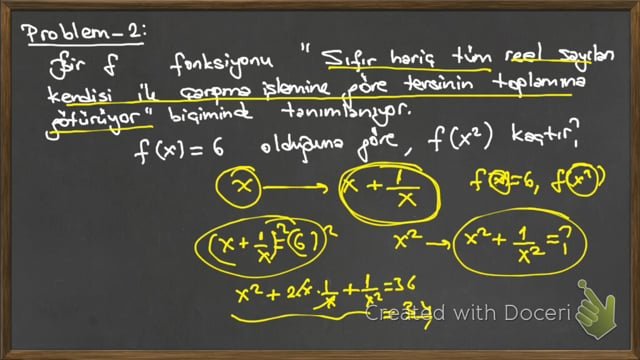 Problem-2:
Bir f fonksiyonu "Sıfır hariç tüm reel sayıları
kendisi ile çarpma işlemine göre tersinin toplamına
götürüyor" biçiminde tanımlanıyor.
f(x) = 6 olduğuna göre, f(x²) kaçtır?
x → x + 1/x f(x)=6, f(x²)
(x + 1/x)² = (6)² x² → x² + 1/x² = ?
x² + 2x · 1/x + 1/x² = 36
= 34
Created with Doceri